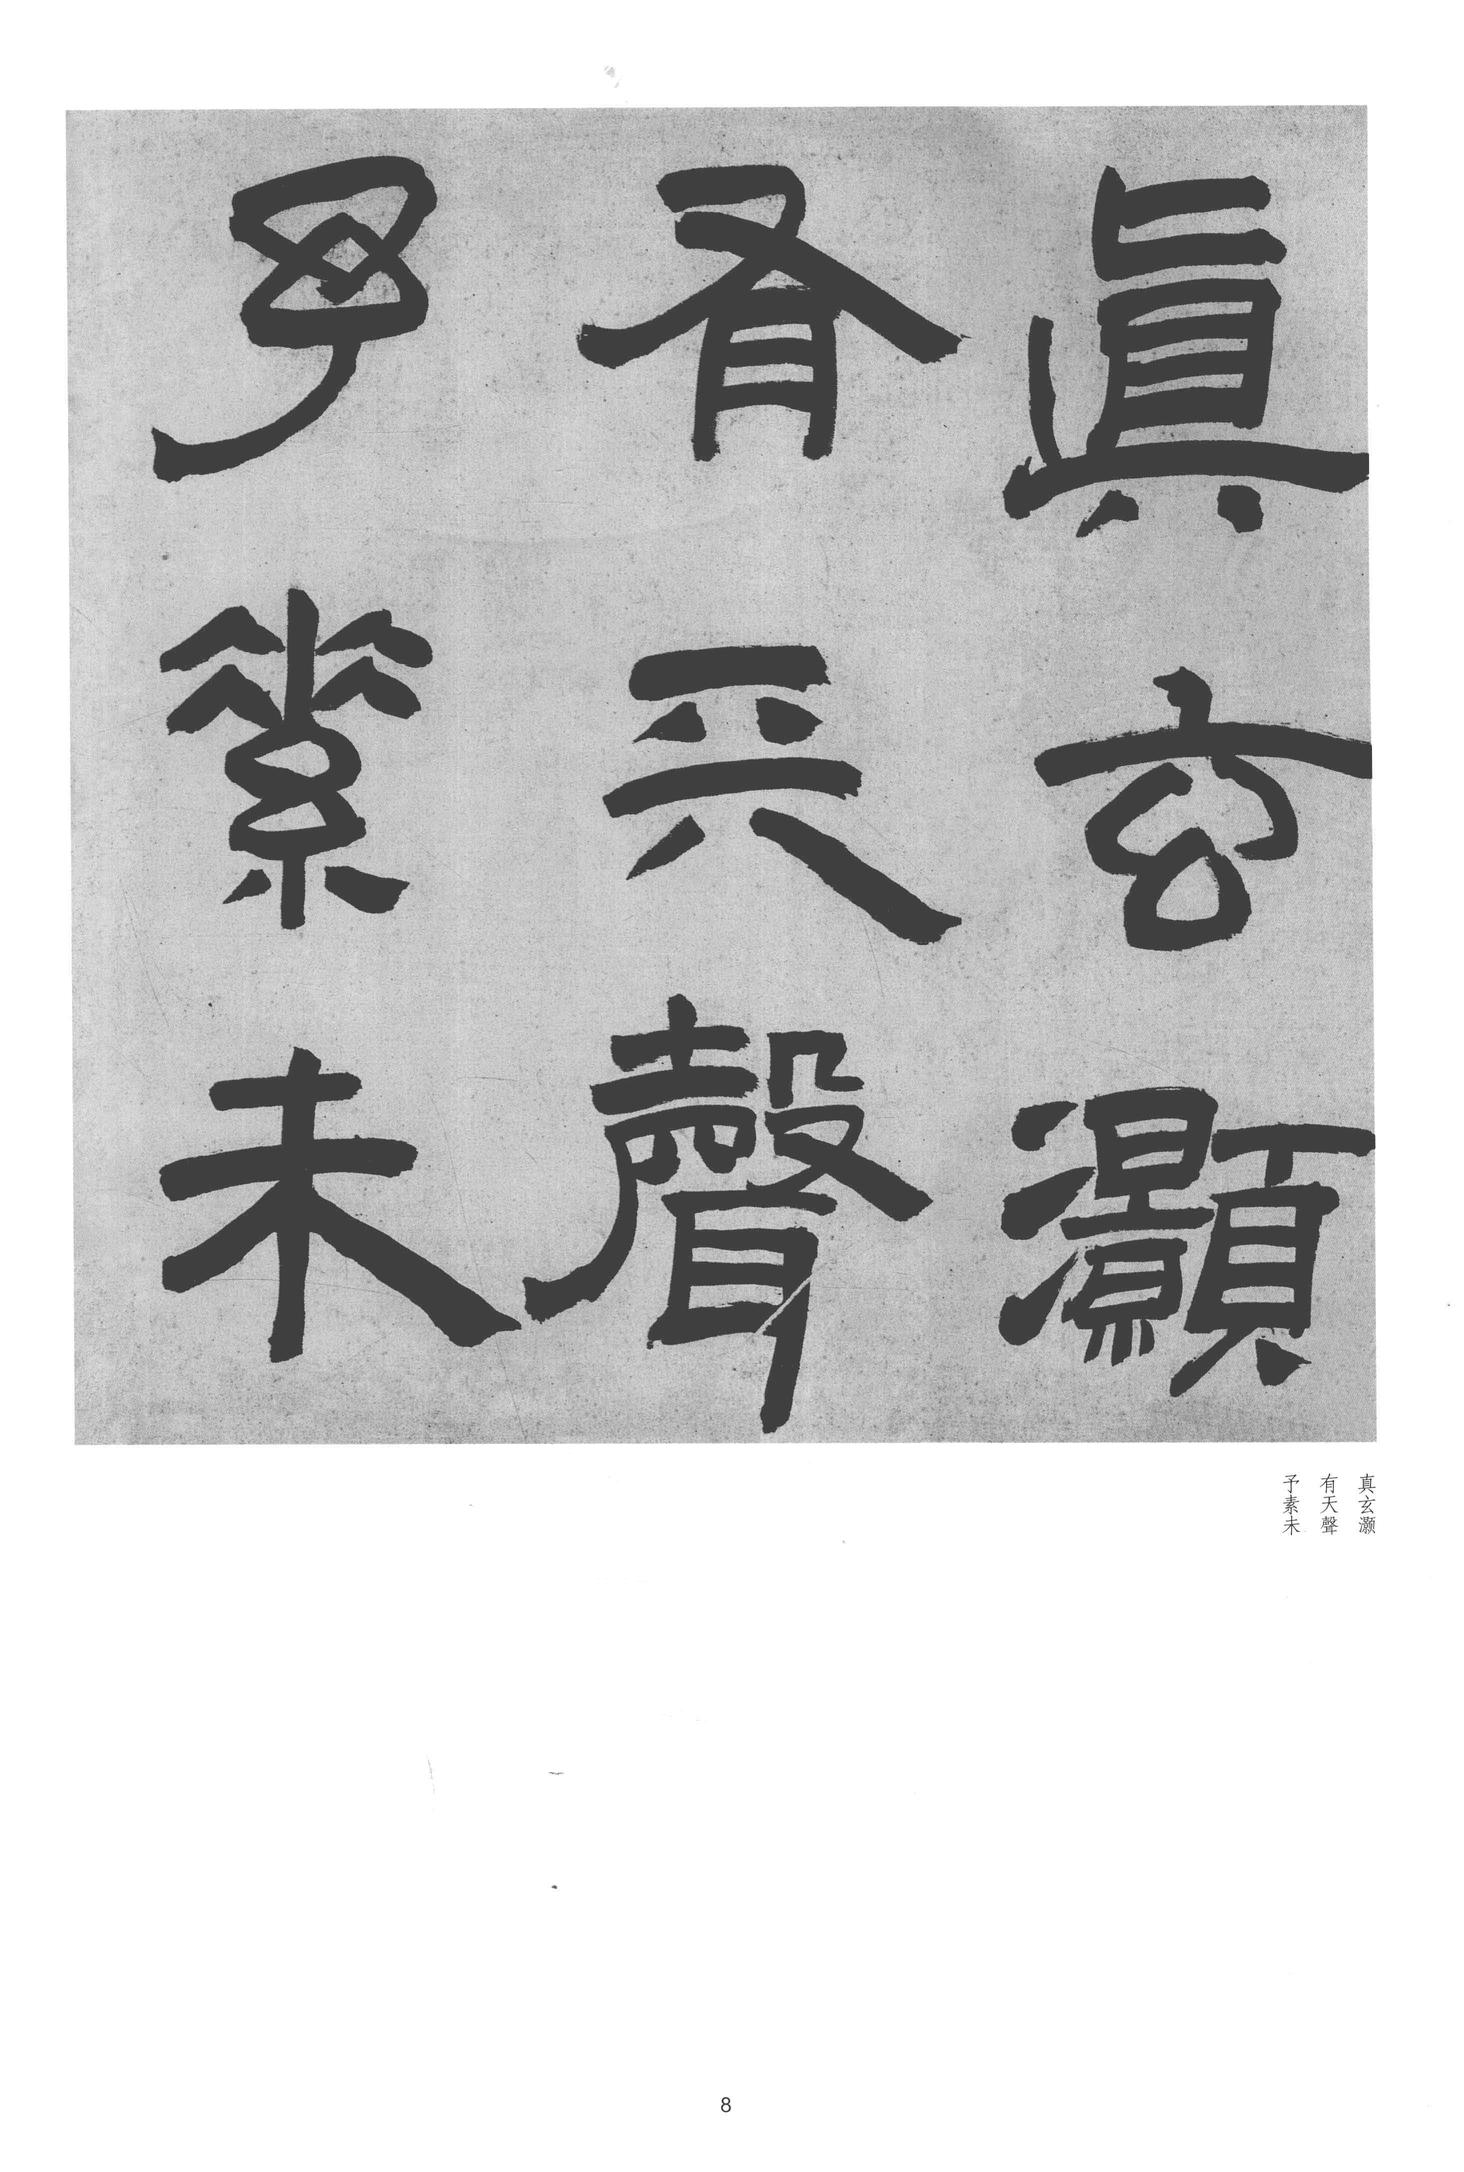 眞玄灝
有天聲
予素未
真玄灏
有天聲
予素未
8